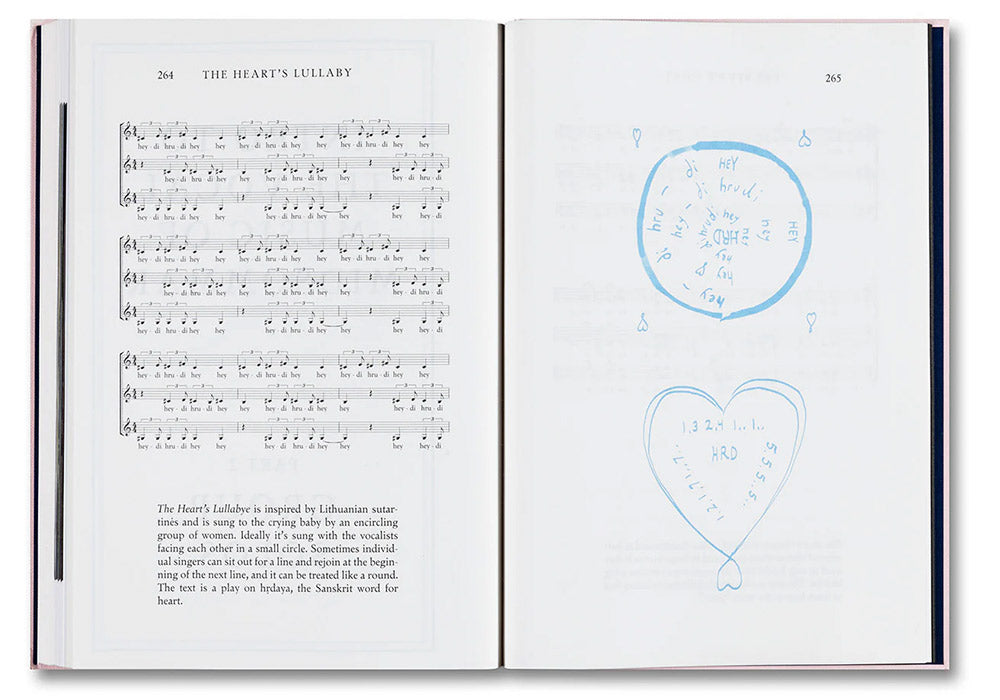 264 THE HEART'S LULLABY
hey - di hru - di hey hey hey - di hru - di hey hey hey - di hru - di hey hey
hey - di hru - di hey hey hey - di hru - di hey hey hey - di hru - di
hey - di hru - di hey hey hey - di hru - di hey hey hey - di
hey - di hru - di hey hey hey - di hru - di hey hey hey - di hru - di hey hey
hey - di hru - di hey hey hey - di hru - di hey hey hey - di hru - di
hey - di hru - di hey hey hey - di hru - di hey hey hey - di
hey - di hru - di hey hey hey - di hru - di hey hey hey - di hru - di hey hey
hey - di hru - di hey hey hey - di hru - di hey hey hey - di hru - di
hey - di hru - di hey hey hey - di hru - di hey hey hey - di
The Heart's Lullabye is inspired by Lithuanian sutar-
tinės and is sung to the crying baby by an encircling
group of women. Ideally it's sung with the vocalists
facing each other in a small circle. Sometimes individ-
ual singers can sit out for a line and rejoin at the begin-
ning of the next line, and it can be treated like a round.
The text is a play on hṛdaya, the Sanskrit word for
heart.
265
hey - di hru - di HEY HEY
hey - di hrudi hey
hey di hrudi hey hey
HRD
hey
1.3 2.4 1..1..
HRD
5.5.5.5..
1.2.1.7.1..7..